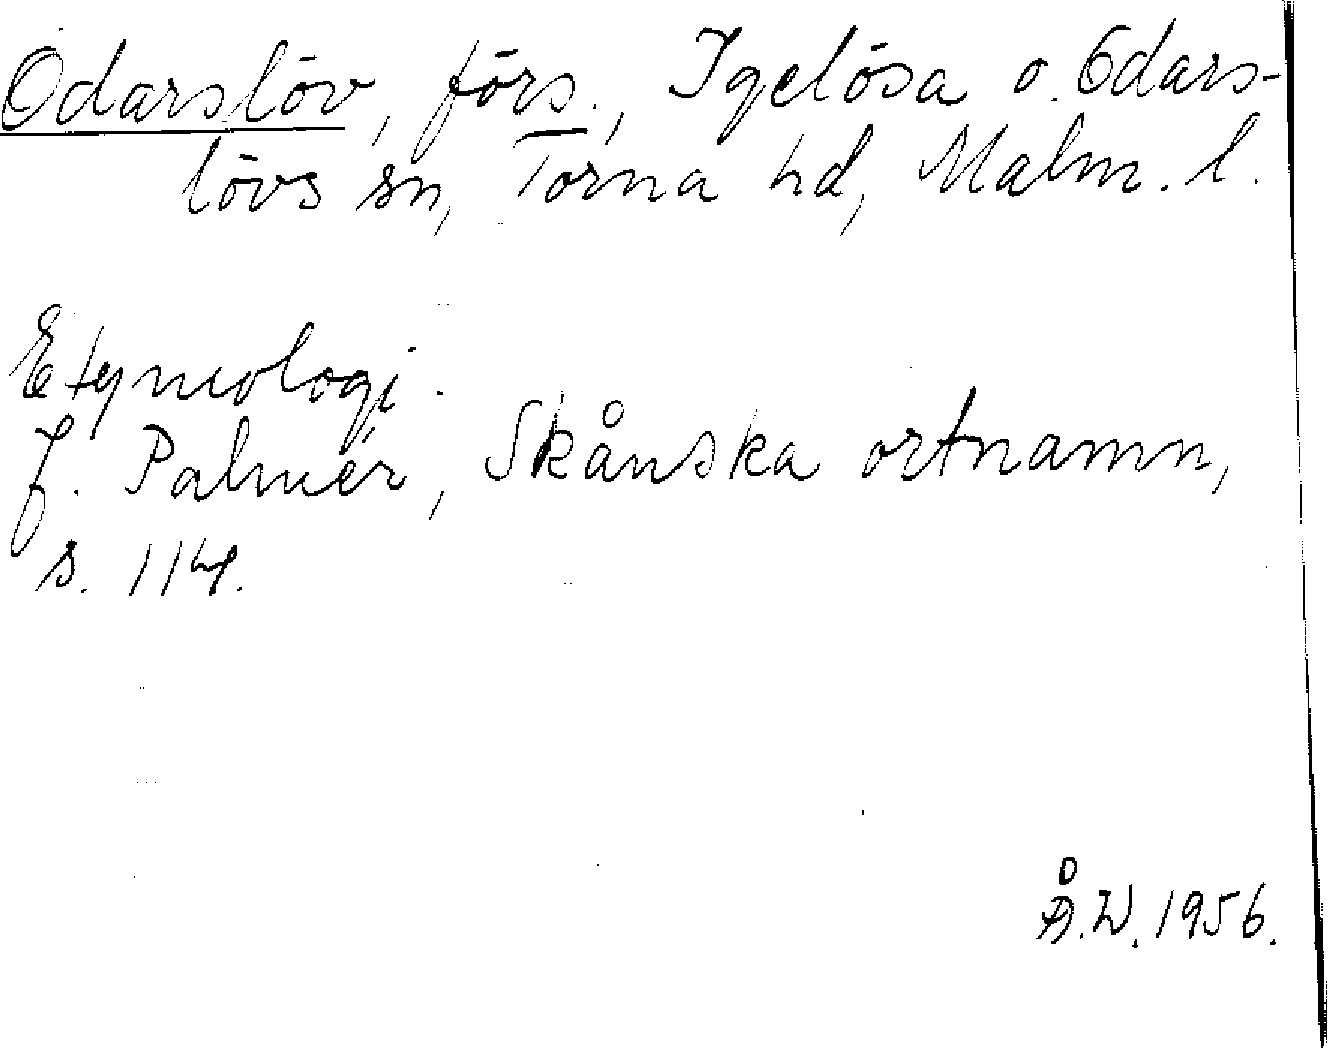 Odarslöv, förs., Igelösa o. Odars-
lövs sn, Torna hd, Malm. l.
Etymologi.
J. Palmér, Skånska ortnamn,
s. 114.
Å.W. 1956.